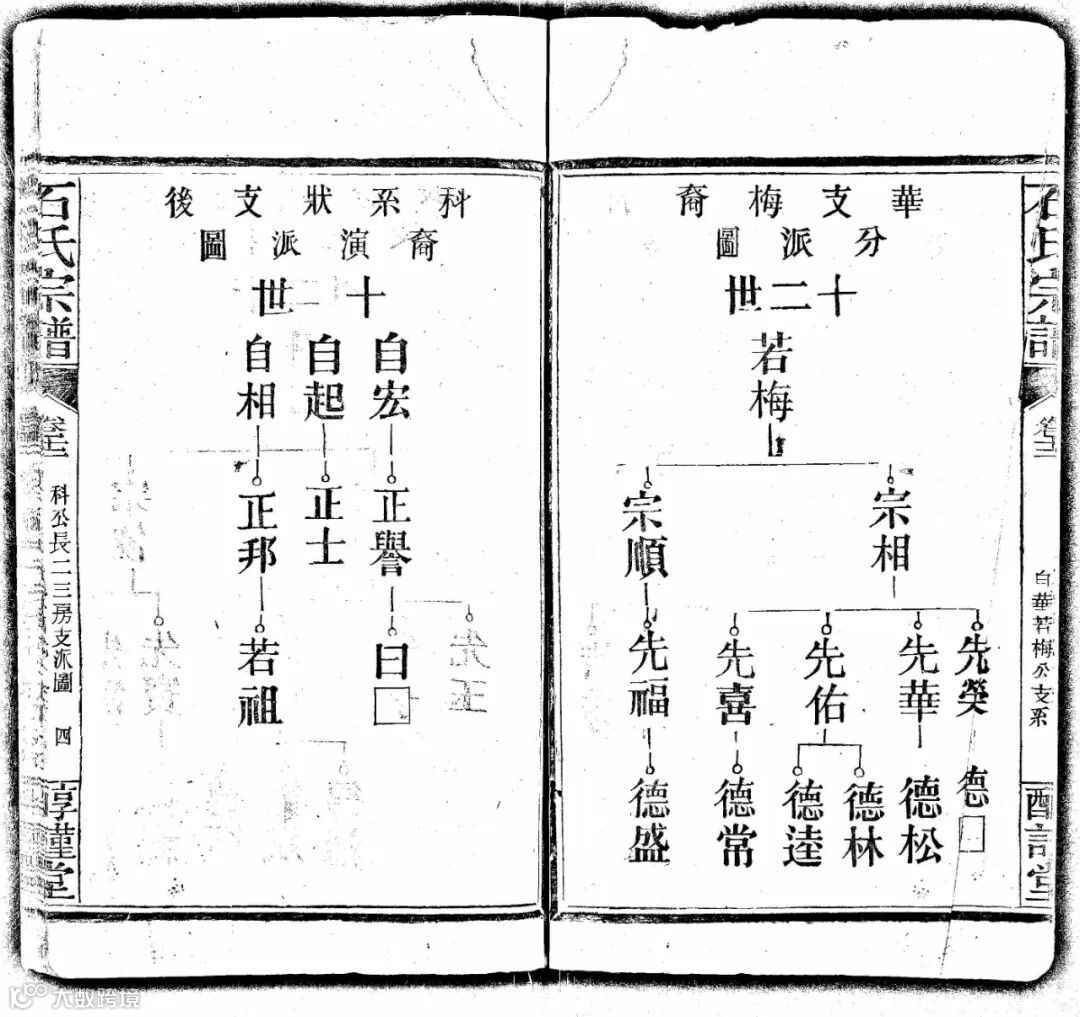 石氏宗譜
卷三
自華若梅公支系
華支梅裔
分派圖
十二世
若梅
宗相
宗順
先榮
先華
先佑
先喜
先福
德□
德松
德林
德逵
德常
德盛
科系狀支後
裔演派圖
十世
自宏
自起
自相
正譽
正士
正邦
曰□
若祖
石氏宗譜
卷三
科公長二三房支派圖
四
惇謹堂
大数跨境